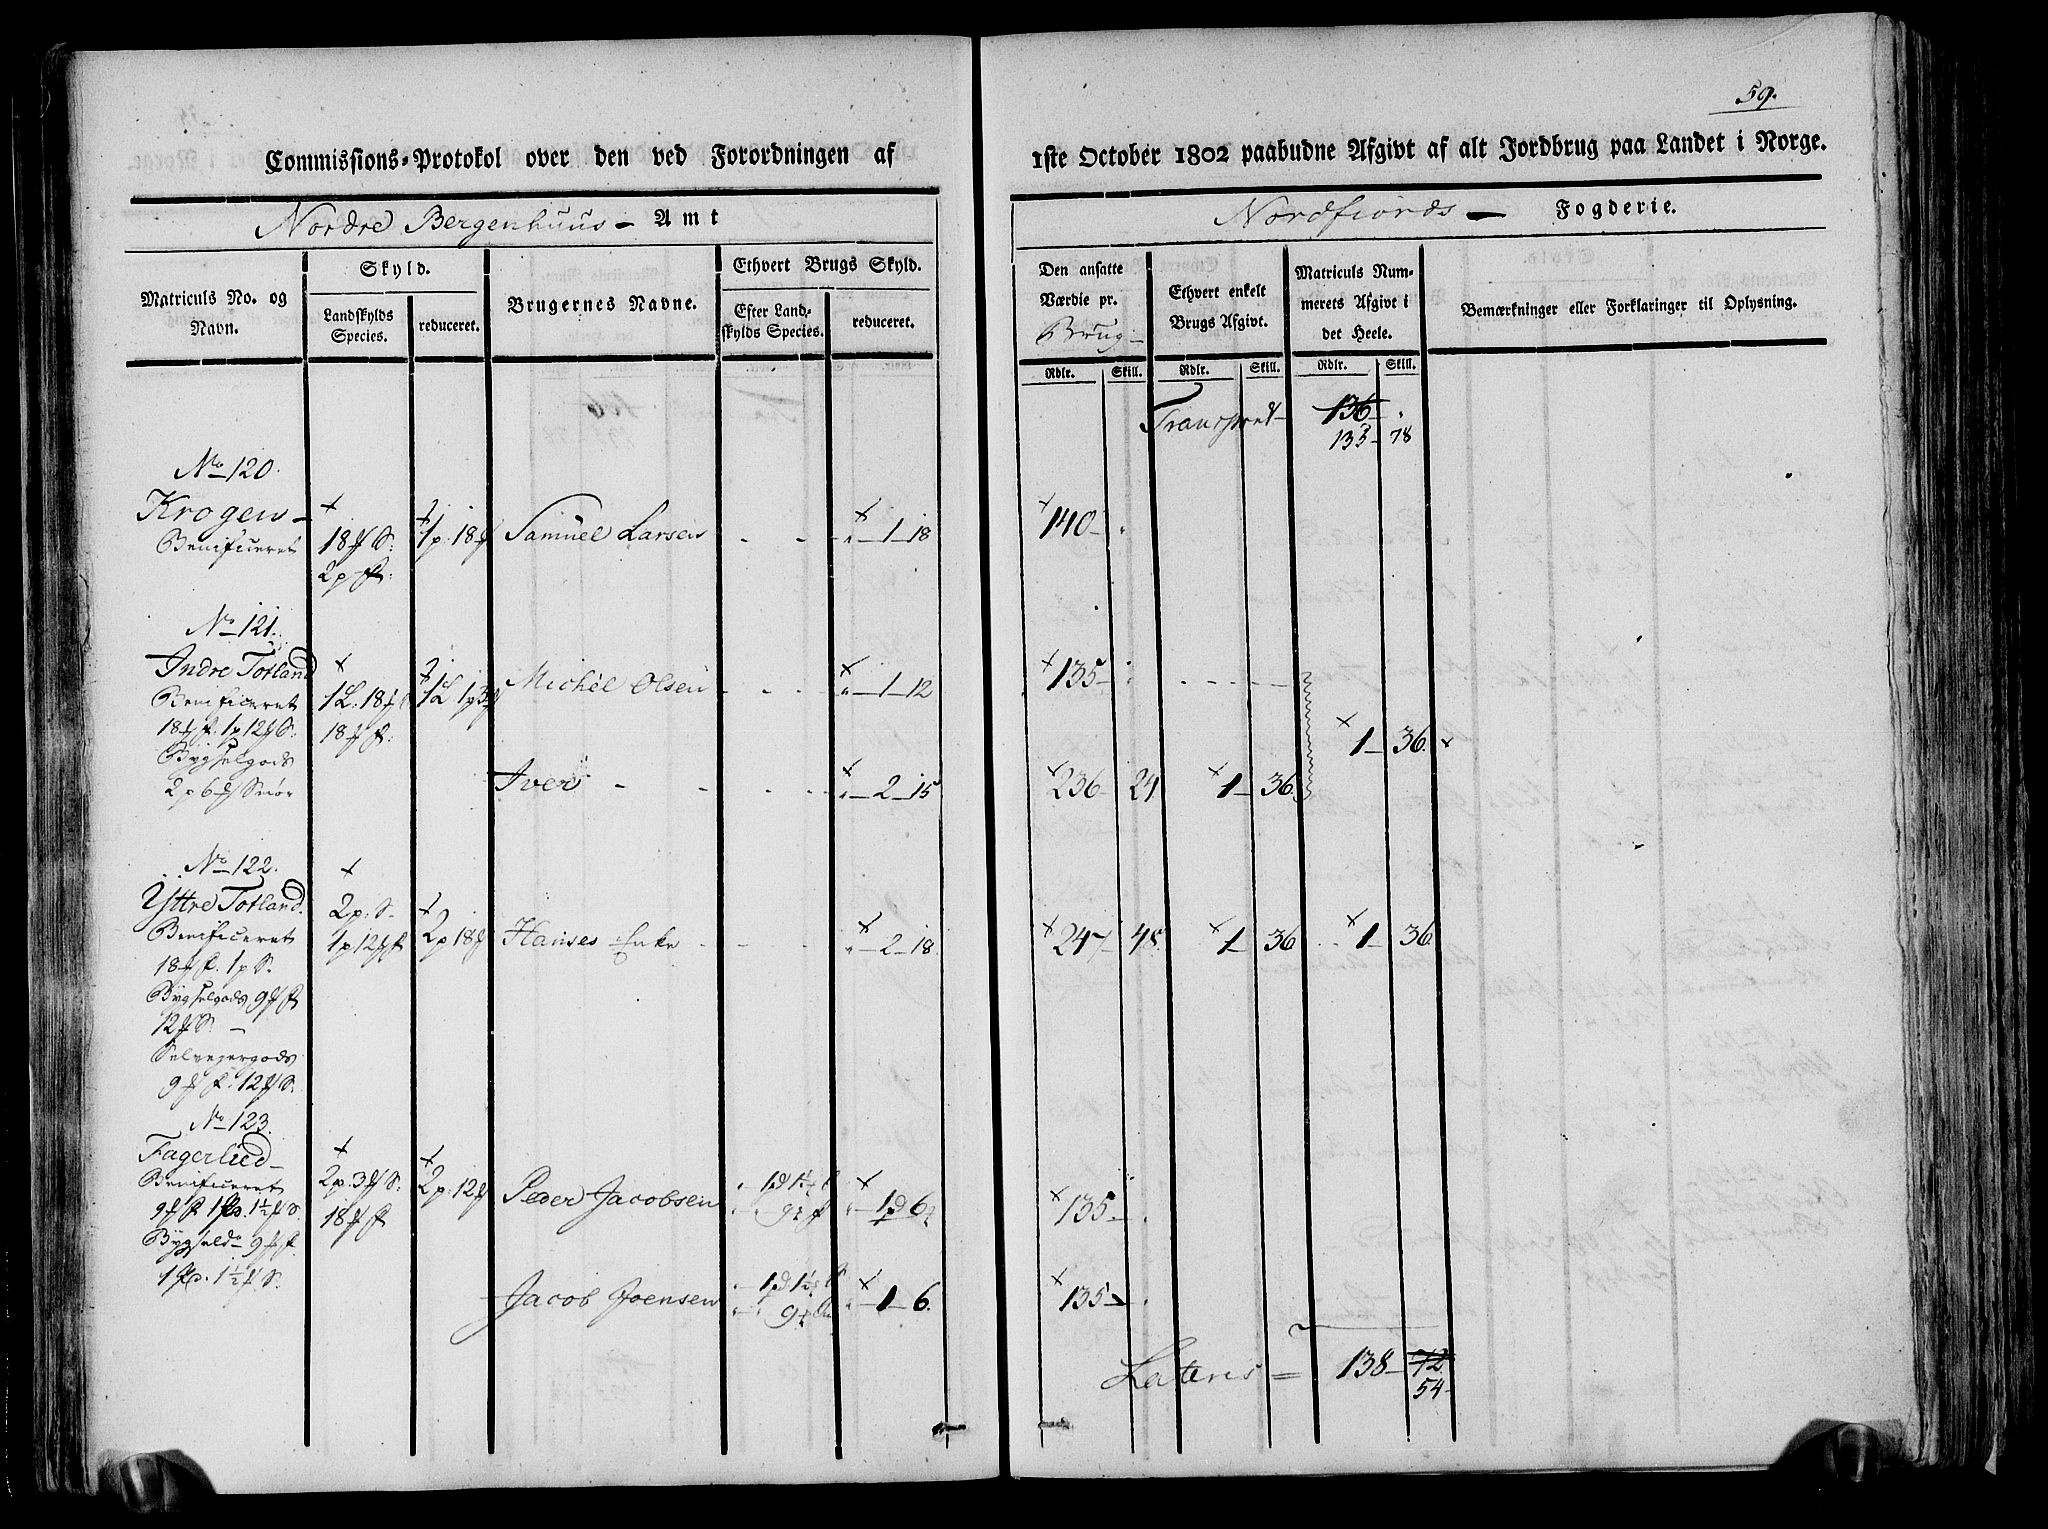 59.
Commissions-Protokol over den ved Forordningen af
1ste October 1802 paabudne Afgivt af alt Jordbrug paa Landet i Norge.
Nordre Bergenhuus - Amt
Nordfiords - Fogderie.
Matriculs No. og Navn.
Skyld.
Landskylds Species.
reduceret.
Brugernes Navne.
Ethvert Brugs Skyld.
Efter Landskylds Species.
reduceret.
Den ansatte Værdie pr. Brug -
Ethvert enkelt Brugs Afgivt.
Matriculs Nummerets Afgivt i det Heele.
Bemærkninger eller Forklaringer til Oplysning.
Rdlr. Skill. Rdlr. Skill. Rdlr. Skill.
Transport - 136 -
133 - 78
No 120.
Krogen -
Benificeret 18 S: 1p. 18 Samuel Larsen - - 1 - 18 140 -
2p
No 121.
Indre Totland 1L. 18 1L 1p 3 Michel Olsen - - - 1 - 12 135 -
Benificeret
18 1p 12 S. 18
1 - 36
Bygselgods
2p 6 Smør Iver - - - 2 - 15 236 - 24 1 - 36
No 122.
Yttre Totland. 2p. S.
Benificeret 1p 12 2p 18 Hanses Enke - - - 2 - 18. 247 - 48. 1 - 36 1 - 36
18 1p S.
Bygselgods 9
12 S. -
Selvejergods
9 12 S.
No 123.
Fagerlied -
Benificeret 2p. 3 S: 2p. 12 Peder Jacobsen 135 -
9 1½ S. 18
Bygsel 9
1½ S. Jacob Joensen 1 - 6. 135 -
Lateris = 138 - 72
54 -